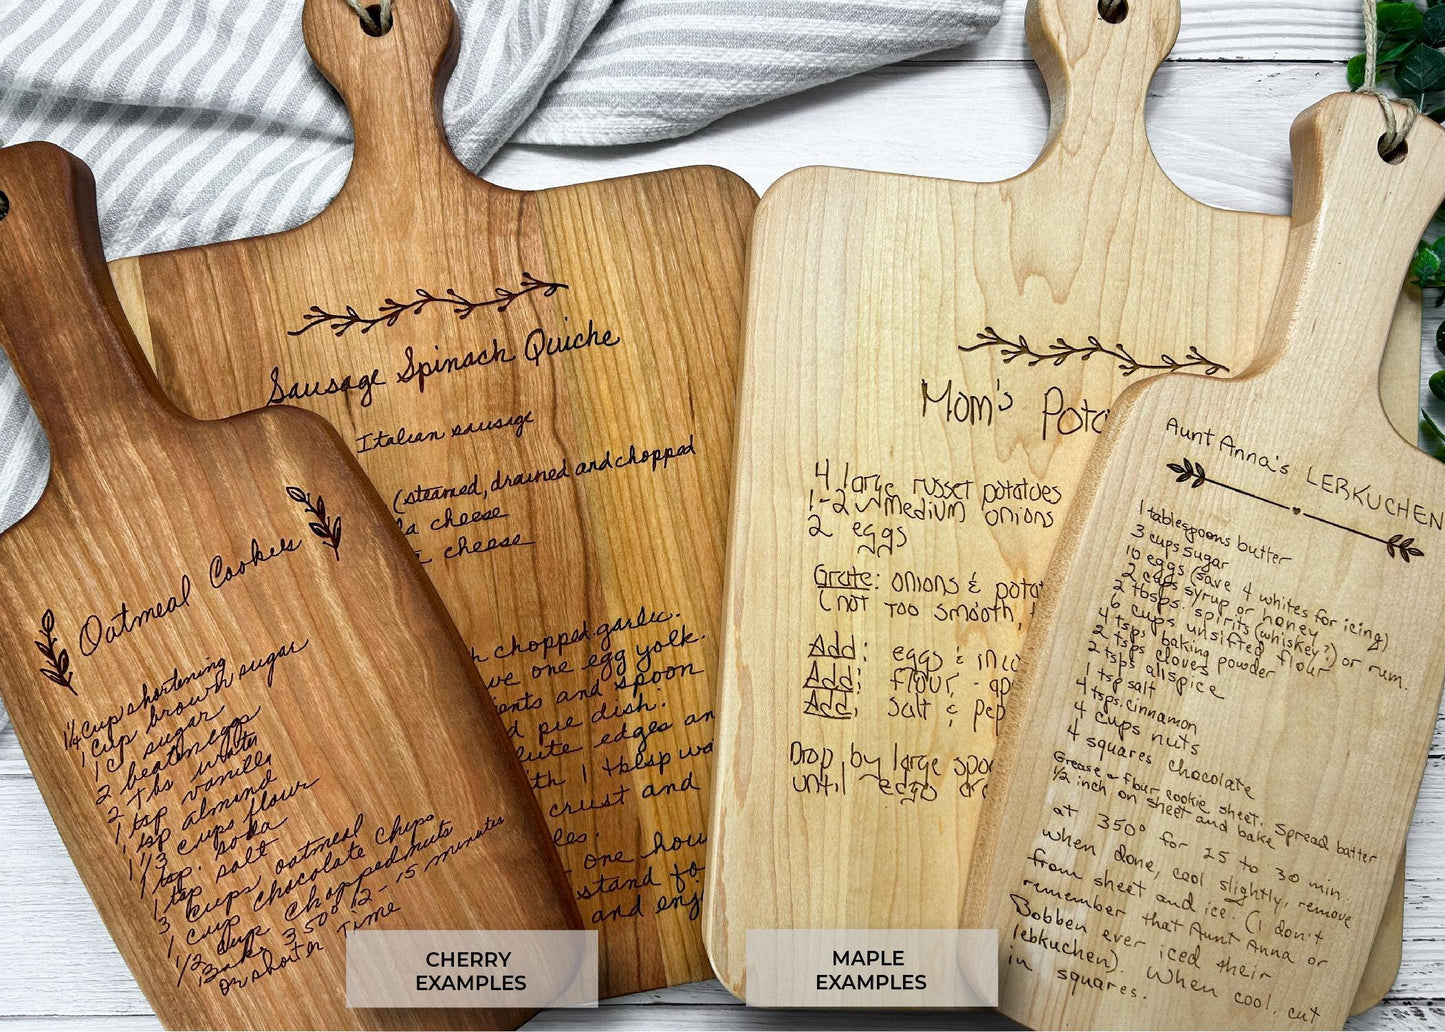 Oatmeal Cookies
1/4 cup shortening
1 cup brown sugar
1 cup sugar
2 beaten eggs
2 tbs water
1 tsp vanilla
1 tsp almond
1 1/3 cups flour
1 tsp. soda
1 tsp salt
3 cups oatmeal
1 cup chocolate chips
1/2 cup chopped nuts
Bake 350° 12-15 minutes
or shorter time
Sausage Spinach Quiche
Italian sausage
(steamed, drained and chopped
cheese
cheese
chopped garlic.
one egg yolk.
and spoon
pie dish.
edges
1 tblsp
crust and
one
and
CHERRY
EXAMPLES
Mom's
4 large russet potatoes
1-2 medium onions
2 eggs
Grate: onions &
(not too smooth,
Add: eggs &
Add: flour -
Add: salt &
Drop by large
until
MAPLE
EXAMPLES
Aunt Anna's LEBKUCHEN
1 tablespoons butter
3 cups sugar
10 eggs (save 4 whites for icing)
2 cups syrup or honey
2 tbsps. spirits (whiskey?) or rum.
6 cups unsifted flour
4 tsps baking powder
2 tsps cloves
2 tsps allspice
1 tsp salt
4 tsps. cinnamon
4 cups nuts
4 squares chocolate
Grease & flour cookie sheet. Spread batter
1/2 inch on sheet and bake
at 350° for 25 to 30 min.
When done, cool slightly, remove
from sheet and ice. (I don't
remember that Aunt Anna or
Bobben ever iced their
lebkuchen). When cool, cut
in squares.